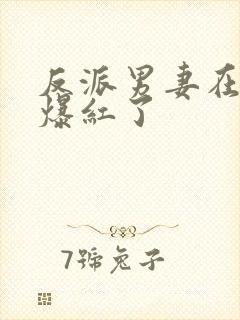 反派男妻在
爆紅了
7號兔子